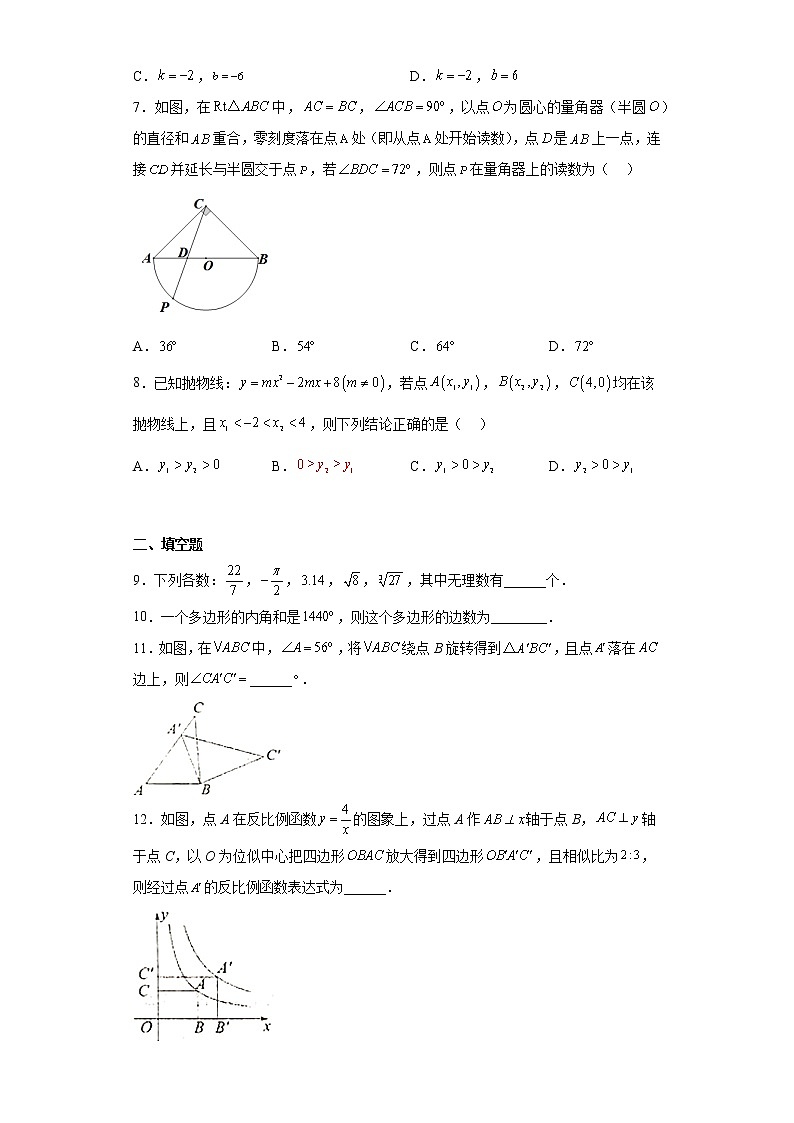 C．k＝−2，b＝−6 D．k＝−2，b＝6
7．如图，在Rt△ABC中，AC＝BC，∠ACB＝90°，以点O为圆心的量角器（半圆O）
的直径和AB重合，零刻度落在点A处（即从点A处开始读数），点D是AB上一点，连
接CD并延长与半圆交于点P，若∠BDC＝72°，则点P在量角器上的读数为（ ）
C
A D O B
P
A．36° B．54° C．64° D．72°
8．已知抛物线：y＝mx²−2mx+8(m≠0)，若点A(x₁,y₁)，B(x₂,y₂)，C(4,0)均在该
抛物线上，且x₁＜−2＜x₂＜4，则下列结论正确的是（ ）
A．y₁＞y₂＞0 B．0＞y₂＞y₁ C．y₁＞0＞y₂ D．y₂＞0＞y₁
二、填空题
9．下列各数：22/7，−π/2，3.14，√8，∛27，其中无理数有______个．
10．一个多边形的内角和是1440°，则这个多边形的边数为________．
11．如图，在VABC中，∠A＝56°，将VABC绕点B旋转得到△A′BC′，且点A′落在AC
边上，则∠CA′C′＝______°．
C
A′
C′
A B
12．如图，点A在反比例函数y＝4/x的图象上，过点A作AB⊥x轴于点B，AC⊥y轴
于点C，以O为位似中心把四边形OBAC放大得到四边形OB′A′C′，且相似比为2:3，
则经过点A′的反比例函数表达式为______．
y
C′ A′
C A
O B B′ x